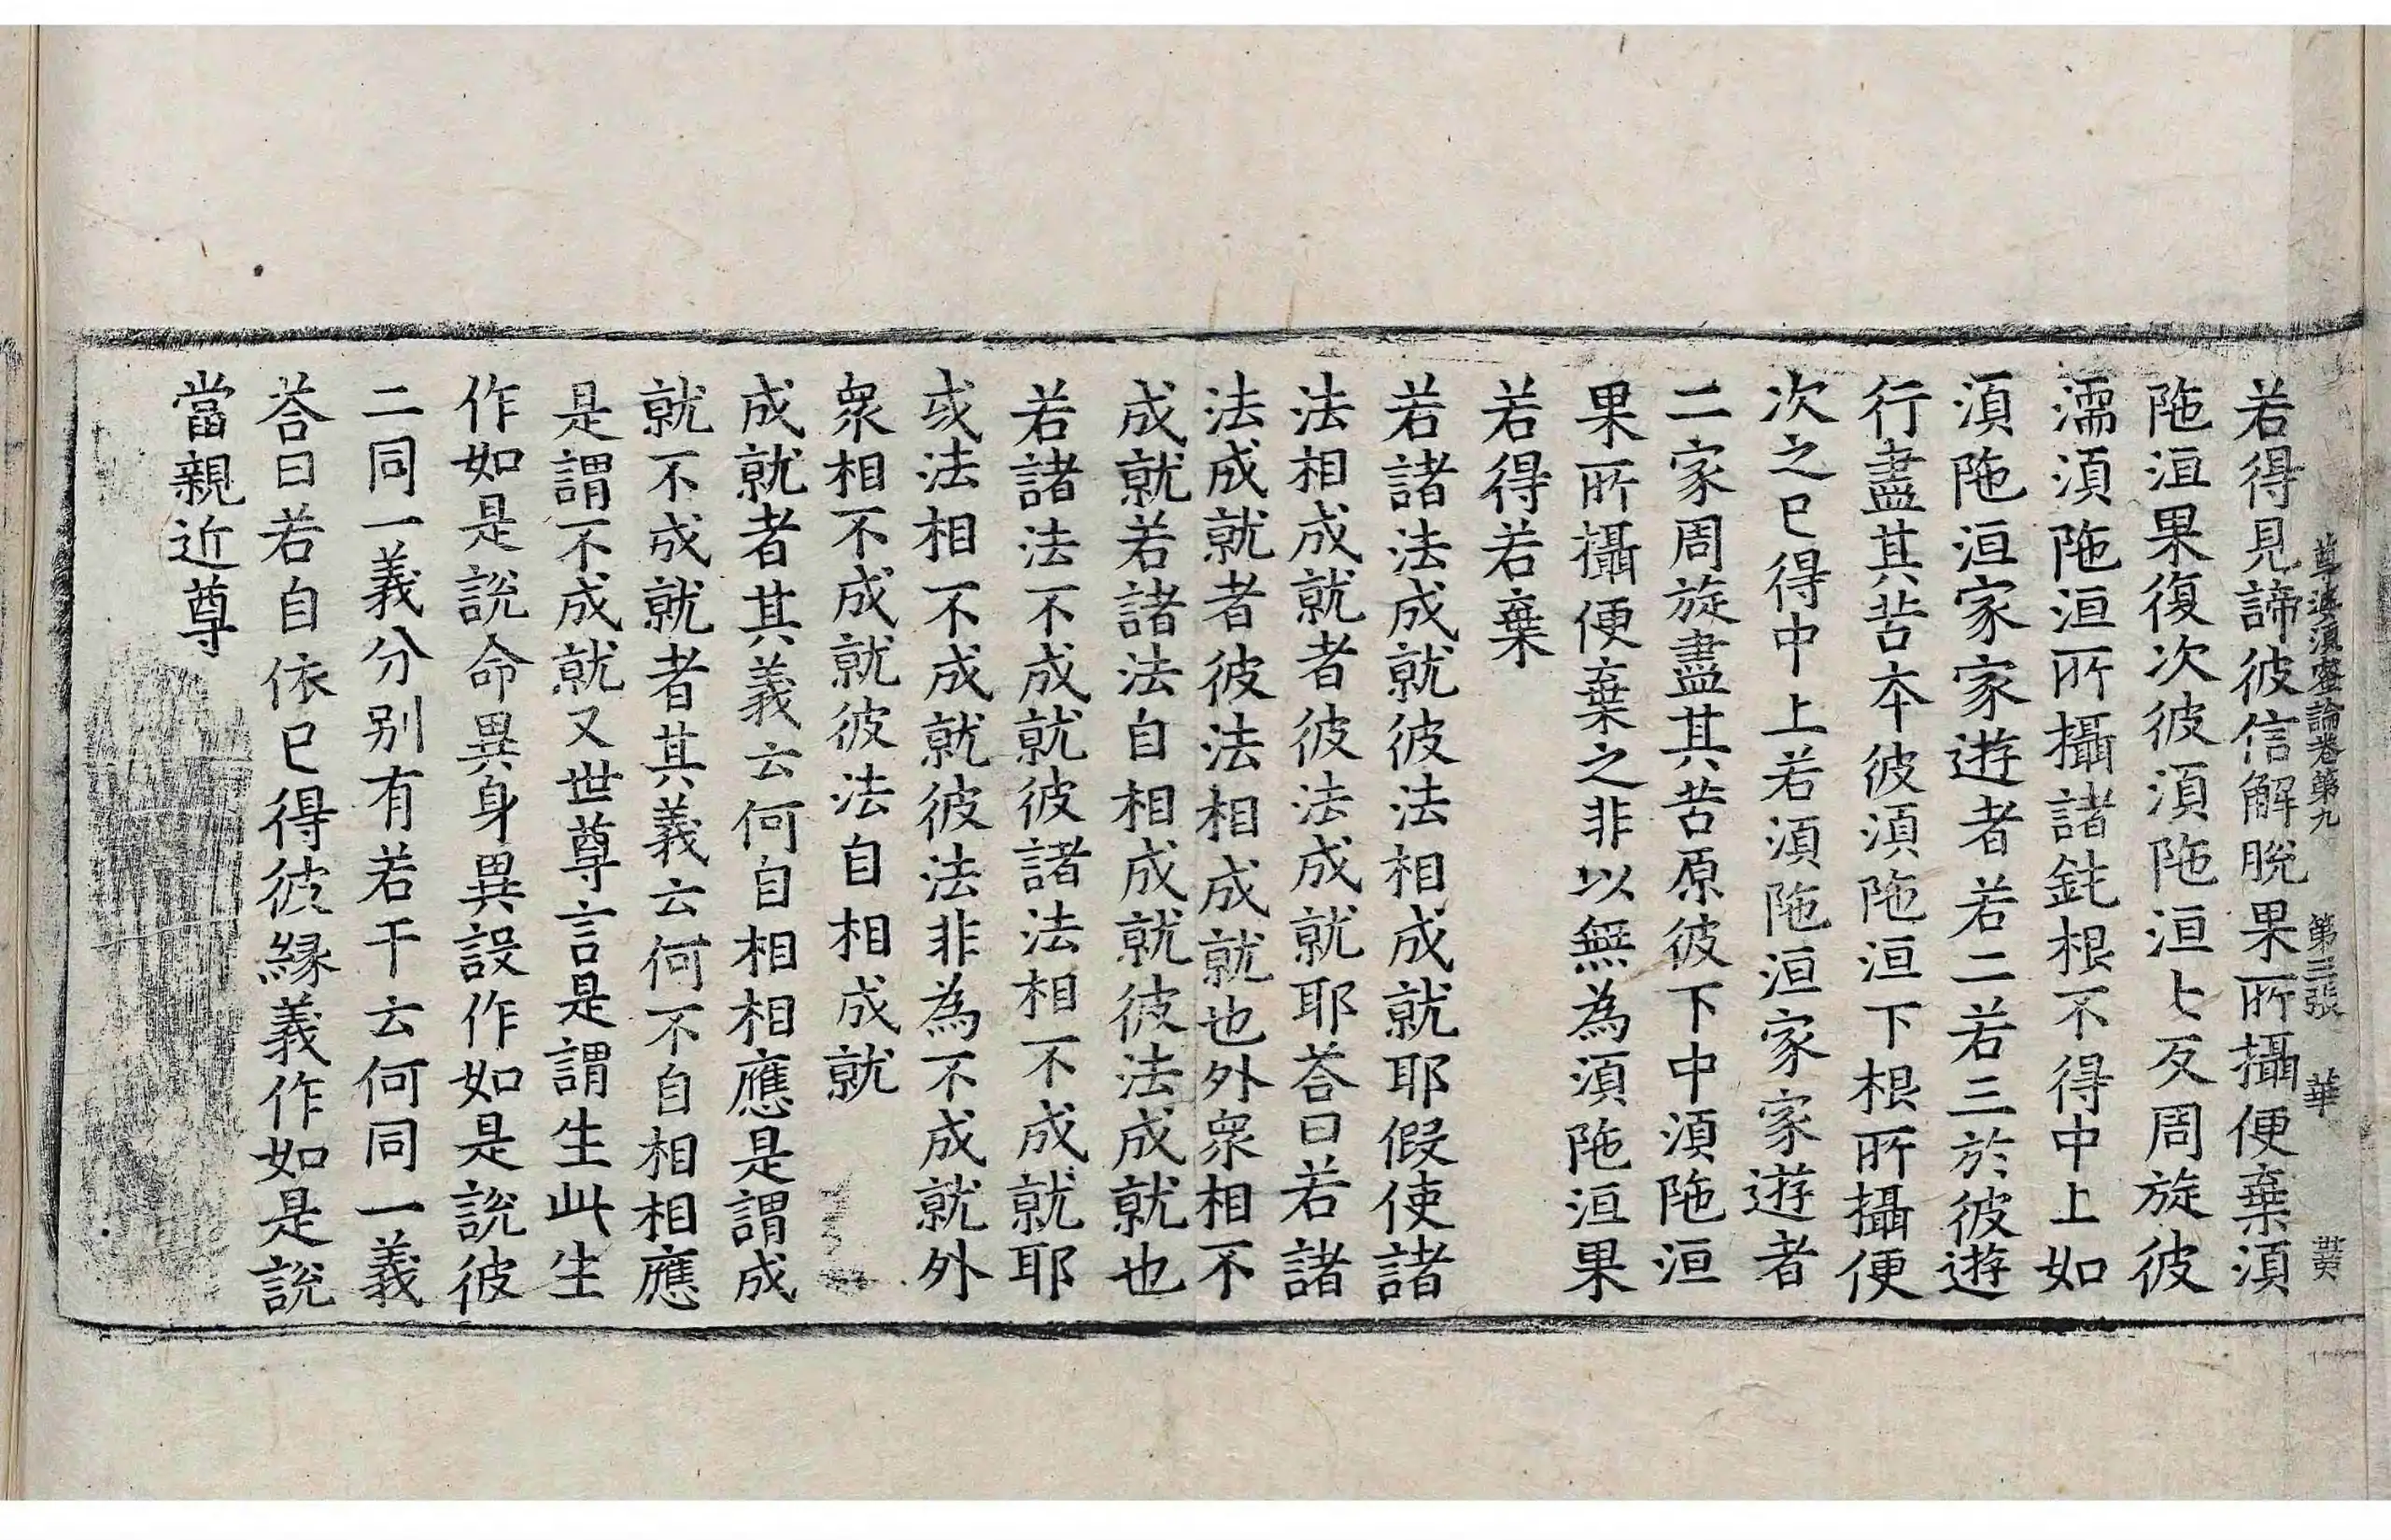 尊婆湏蜜論卷第九　第三張　華
若得見諦彼信解脫果所攝便棄湏
陁洹果復次彼湏陁洹七反周旋彼
濡湏陁洹所攝諸鈍根不得中上如
湏陁洹家家遊者若二若三於彼遊
行盡其苦本彼湏陁洹下根所攝便
次之已得中上若湏陁洹家家遊者
二家周旋盡其苦原彼下中湏陁洹
果所攝便棄之非以無為湏陁洹果
若得若棄
若諸法成就彼法相成就耶假使諸
法相成就者彼法成就耶荅曰若諸
法成就者彼法相成就也外衆相不
成就若諸法自相成就彼法成就也
若諸法不成就彼諸法相不成就耶
或法相不成就彼法非為不成就外
衆相不成就彼法自相成就
成就者其義云何自相相應是謂成
就不成就者其義云何不自相相應
是謂不成就又世尊言是謂生此生
作如是說命異身異設作如是說彼
二同一義分別有若干云何同一義
荅曰若自依已得彼緣義作如是說
當親近尊